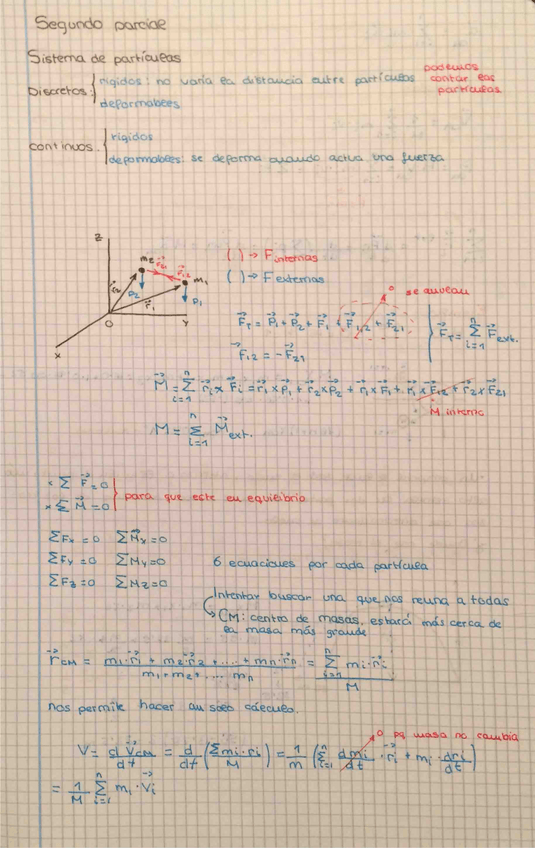 Segundo parcial
Sistema de partículas
Discretos: { rígidos: no varía la distancia entre partículas podemos contar las partículas
deformables
continuos. { rígidos
deformables: se deforma cuando actua una fuerza
z
m2 F21 F12 m1
r2 P2 r1 P1
O y
x
( ) → F internas
( ) → F externas
0 se anulan
F⃗T = P⃗1 + P⃗2 + F⃗1 + F⃗1,2 + F⃗21 } F⃗T = Σ(i=1..n) F⃗ext.
F⃗12 = -F⃗21
M⃗ = Σ(i=1..n) r⃗i × F⃗i = r⃗1×P⃗1 + r⃗2×P⃗2 + r⃗1×F⃗1 + r⃗1×F⃗12 + r⃗2×F⃗21
M interna
M = Σ(i=1..n) M⃗ext.
× Σ F⃗ = 0
× Σ M⃗ = 0 } para que este en equilibrio
ΣFx = 0 ΣM⃗x = 0
ΣFy = 0 ΣMy = 0 6 ecuaciones por cada partícula
ΣFz = 0 ΣMz = 0
Intentar buscar una que nos reuna a todas
→ CM: centro de masas, estará más cerca de
la masa más grande
r⃗CM = (m1·r⃗1 + m2·r⃗2 + .... + mn·r⃗n) / (m1 + m2 + .... mn) = Σ(i=1..n) mi·r⃗i / M
nos permite hacer un solo cálculo.
0 pq masa no cambia
V = d r⃗CM/dt = d/dt (Σmi·ri / M) = 1/m (Σ(i=1..n) dmi/dt · r⃗i + mi · dri/dt)
= 1/M Σ(i=1..n) mi · V⃗i